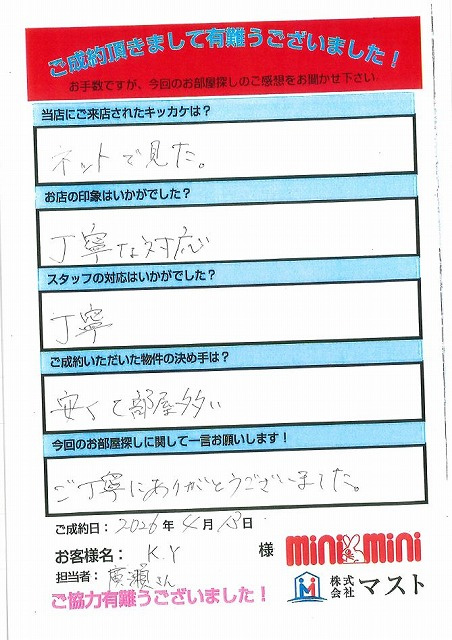 ご成約頂きまして有難うございました！
お手数ですが、今回のお部屋探しのご感想をお聞かせ下さい
当店にご来店されたキッカケは？
ネットで見た。
お店の印象はいかがでした？
丁寧な対応
スタッフの対応はいかがでした？
丁寧
ご成約いただいた物件の決め手は？
安くて部屋多い
今回のお部屋探しに関して一言お願いします！
ご丁寧にありがとうございました。
ご成約日： 2026 年 4 月 日
お客様名： K.Y 様
minimini
担当者： 廣瀬さん
株式会社 マスト
ご協力有難うございました！